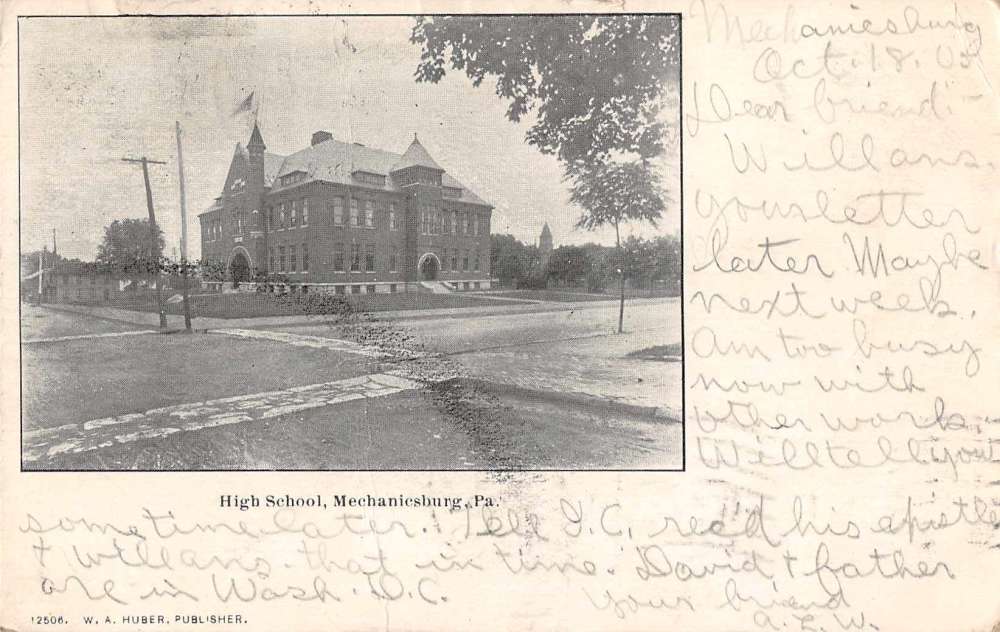 Mechanicsburg
Oct. 18. 05
Dear friend -
Will ans.
your letter
later Maybe
next week.
Am too busy
now with
other work.
Will tell you
High School, Mechanicsburg, Pa.
sometime later. Tell I.C. rec'd his epistle
& will ans. that in time. David & father
are in Wash. D.C.
Your friend
A.L.W.
12506. W. A. HUBER, PUBLISHER.